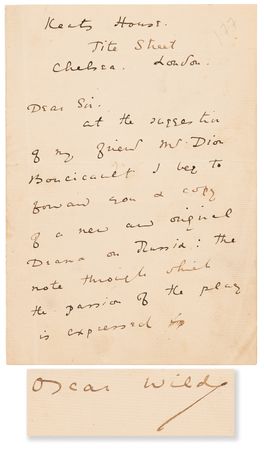 Keats House.
Tite Street
Chelsea. London.
Dear Sir.
at the suggestion
of my friend Mr Dion
Boucicault I beg to
forward you a copy
of a new and original
Drama on Russia: the
note through which
the passion of the play
is expressed
Oscar Wilde